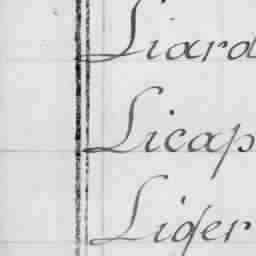 Liard
Licap
Liger